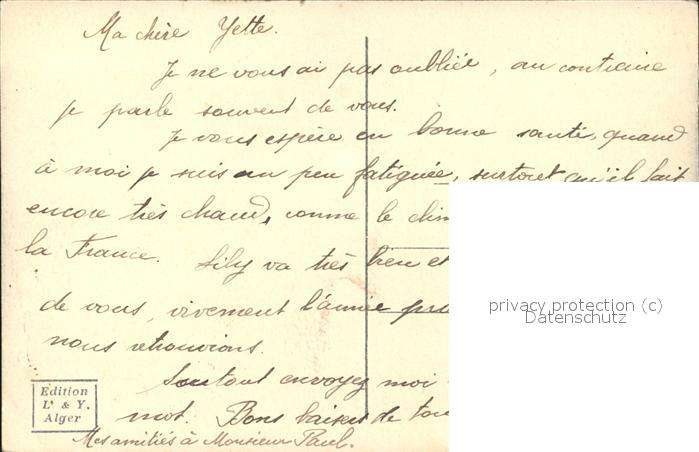 Ma chère Yette.
Je ne vous ai pas oubliée, au contraire
je parle souvent de vous.
Je vous espère en bonne santé, quand
à moi je suis un peu fatiguée, surtout qu'il fait
encore très chaud, comme le
la France. Lily va très bien et
de vous, vivement l'année
nous retrouvions.
Surtout envoyez moi
mot. Bons baisers de
Mes amitiés à Monsieur Paul.
privacy protection (c)
Datenschutz
Edition
L. & Y.
Alger